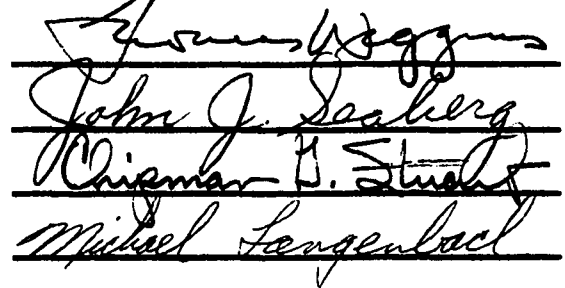 Thomas Wiggins
John J. Seaberg
Chipman G. Stuart
Michael Langenbach